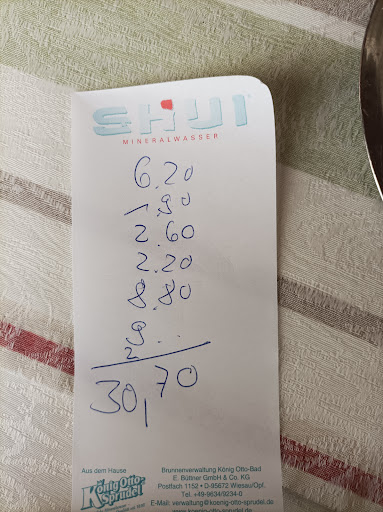 SHUI
MINERALWASSER
6.20
1.90
2.60
2.20
8.80
9...
2
30,70
Aus dem Hause
König Otto-
Sprudel
Brunnenverwaltung König Otto-Bad
E. Büttner GmbH & Co. KG
Postfach 1152 • D-95672 Wiesau/Opf.
Tel. +49-9634/9234-0
E-Mail: verwaltung@koenig-otto-sprudel.de
www.koenig-otto-sprudel.de